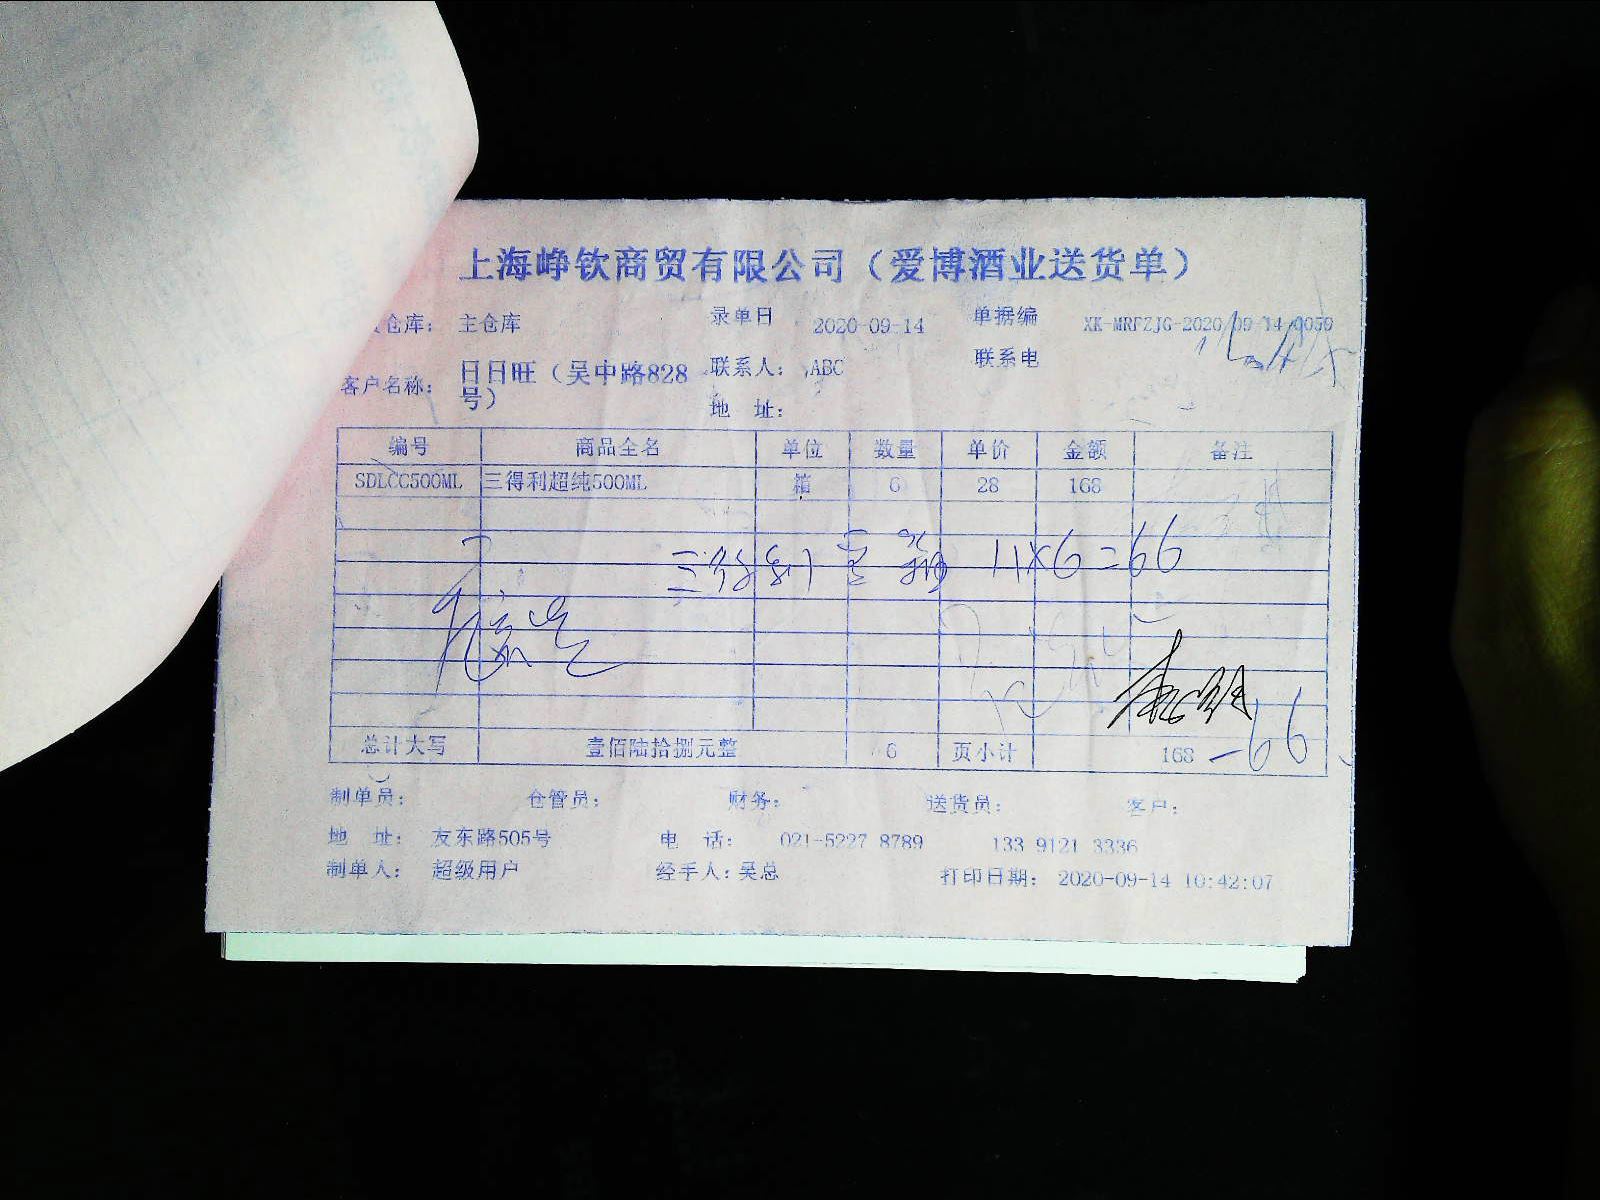 上海峥钦商贸有限公司（爱博酒业送货单）
仓库： 主仓库 录单日 2020-09-14 单据编 XK-MRFZJG-2020-09-14-0059
客户名称： 日日旺（吴中路828号） 联系人： ,ABC 联系电
地 址：
编号 商品全名 单位 数量 单价 金额 备注
SDLCC500ML 三得利超纯500ML 箱 6 28 168
三得利空瓶 11×6=66
总计大写 壹佰陆拾捌元整 6 页小计 168 -66
制单员： 仓管员： 财务： 送货员： 客户：
地 址： 友东路505号 电 话： 021-5227 8789 133 9121 3336
制单人： 超级用户 经手人：吴总 打印日期： 2020-09-14 10:42:07